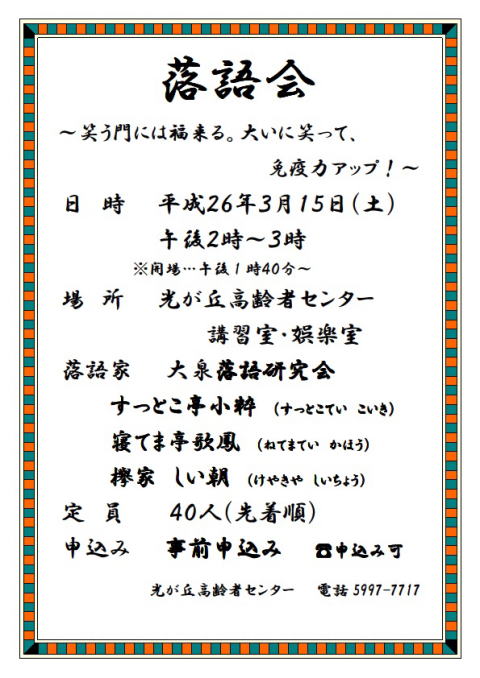 落語会
～笑う門には福来る。大いに笑って、
免疫力アップ！～
日　時　平成26年3月15日（土）
午後2時～3時
※開場…午後1時40分～
場　所　光が丘高齢者センター
講習室・娯楽室
落語家　大泉落語研究会
すっとこ亭小粋（すっとこてい　こいき）
寝てま亭歌鳳（ねてまてい　かほう）
欅家　しい朝（けやきや　しいちょう）
定　員　40人（先着順）
申込み　事前申込み　☎申込み可
光が丘高齢者センター　電話5997-7717